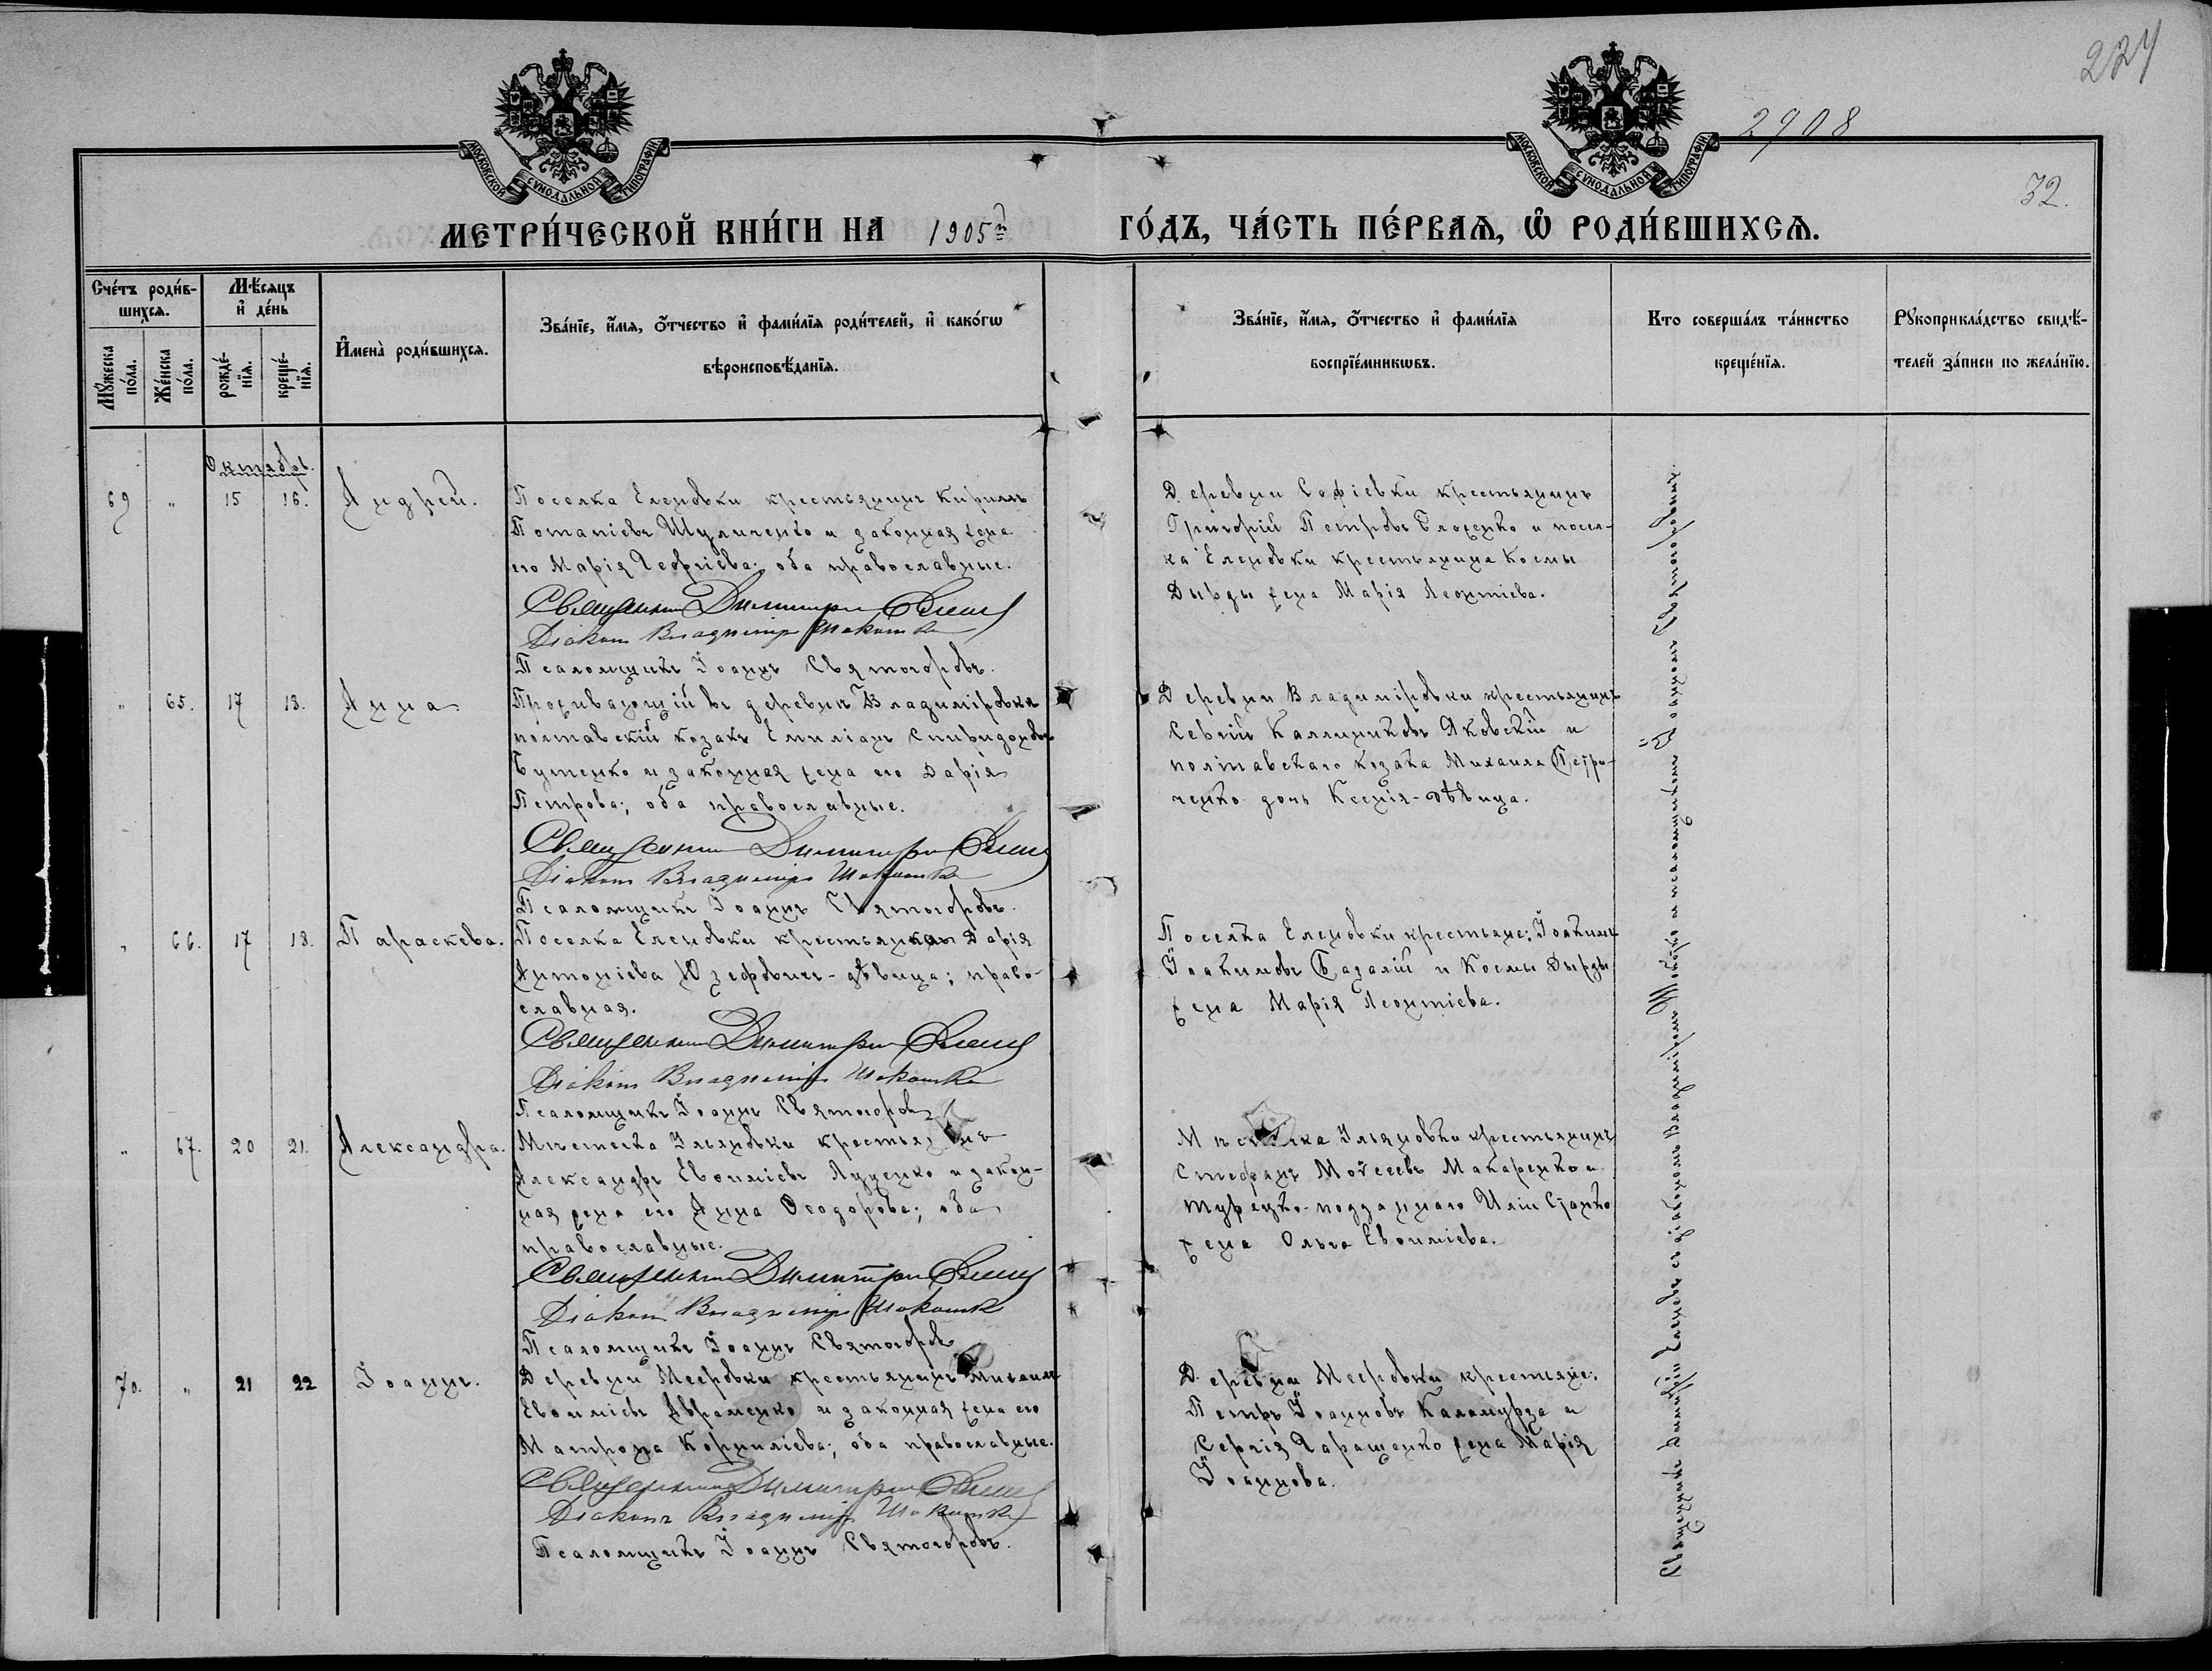 224
2908
32.
МОСКОВСКОЙ СѴНОДАЛЬНОЙ ТИПОГРАФІИ
МОСКОВСКОЙ СѴНОДАЛЬНОЙ ТИПОГРАФІИ
МЕТРИ́ЧЕСКОЙ КНИ́ГИ НА 1905й ГО́ДЪ, ЧА́СТЬ ПЕ́РВАѦ, Ѽ РОДИ́ВШИХСѦ.
Сче́тъ роди́в-
шихсѧ.
Мꙋ́жеска по́ла.
Же́нска по́ла.
Мѣ́сѧцъ
и҆ де́нь
рожде́-
нїѧ.
креще́-
нїѧ.
И҆мена̀ роди́вшихсѧ.
Зва́нїе, и҆́мѧ, ѻ҆́тчество и҆ фами́лїѧ роди́телей, и҆ како́гѡ
вѣроисповѣ́данїѧ.
Зва́нїе, и҆́мѧ, ѻ҆́тчество и҆ фами́лїѧ
воспрїе́мникѡвъ.
Кто соверша́лъ та́инство
креще́нїѧ.
Рꙋкоприкла́дство свидѣ́-
телей за́писи по жела́нїю.
Октябрь.
69 " 15 16. Андрей.
Поселка Еленовки крестьянинъ Кириллъ
Потапіевъ Шуличенко и законная жена
его Марія Георгіева; оба православные.
Священникъ Димитрій
Діаконъ Владиміръ
Псаломщикъ Іоаннъ Святогоровъ.
Деревни Софіевки крестьянинъ
Григорій Петровъ и посел-
ка Еленовки крестьянина Космы
Дырды жена Марія Леонтіева.
" 65. 17 18. Анна
Проживающій въ деревнѣ Владиміровкѣ
полтавскій козакъ Емиліанъ Спиридоновъ
Бутенко и законная жена его Дарія
Петрова; оба православные.
Священникъ Димитрій
Діаконъ Владиміръ
Псаломщикъ Іоаннъ Святогоровъ.
Деревни Владиміровки крестьянинъ
Сергій Каллиниковъ Яковскій и
полтавскаго козака Михаила Петри-
ченко дочь Ксенія-дѣвица.
" 66. 17 18. Параскева.
Поселка Еленовки крестьянка Дарія
Антоніева Юзефовичъ-дѣвица; право-
славная.
Священникъ Димитрій
Діаконъ Владиміръ
Псаломщикъ Іоаннъ Святогоровъ
Поселка Еленовки крестьяне: Іоакимъ
Іоакимовъ Базалій и Космы Дырды
жена Марія Леонтіева.
" 67. 20 21. Александра.
Мѣстечка Ульяновки крестьянинъ
Александръ Евѳиміевъ Луценко и закон-
ная жена его Анна Ѳеодорова; оба
православные.
Священникъ Димитрій
Діаконъ Владиміръ
Псаломщикъ Іоаннъ Святогоровъ
Мѣстечка Ульяновки крестьянинъ
Стефанъ Моѵсеевъ Макаренко и
турецко-подданнаго Иліи
жена Ольга Евѳиміева.
70. " 21 22 Іоаннъ.
Деревни Мееровки крестьянинъ Михаилъ
Евѳиміевъ Авраменко и законная жена его
Матрона Корниліева; оба православные.
Священникъ Димитрій
Діаконъ Владиміръ
Псаломщикъ Іоаннъ Святогоровъ.
Деревни Мееровки крестьяне:
Петръ Іоанновъ Каламурза и
Сергія Гаращенко жена Марія
Іоаннова.
Священникъ Димитрій съ діакономъ Владиміромъ и псаломщикомъ Іоанномъ Святогоровымъ.